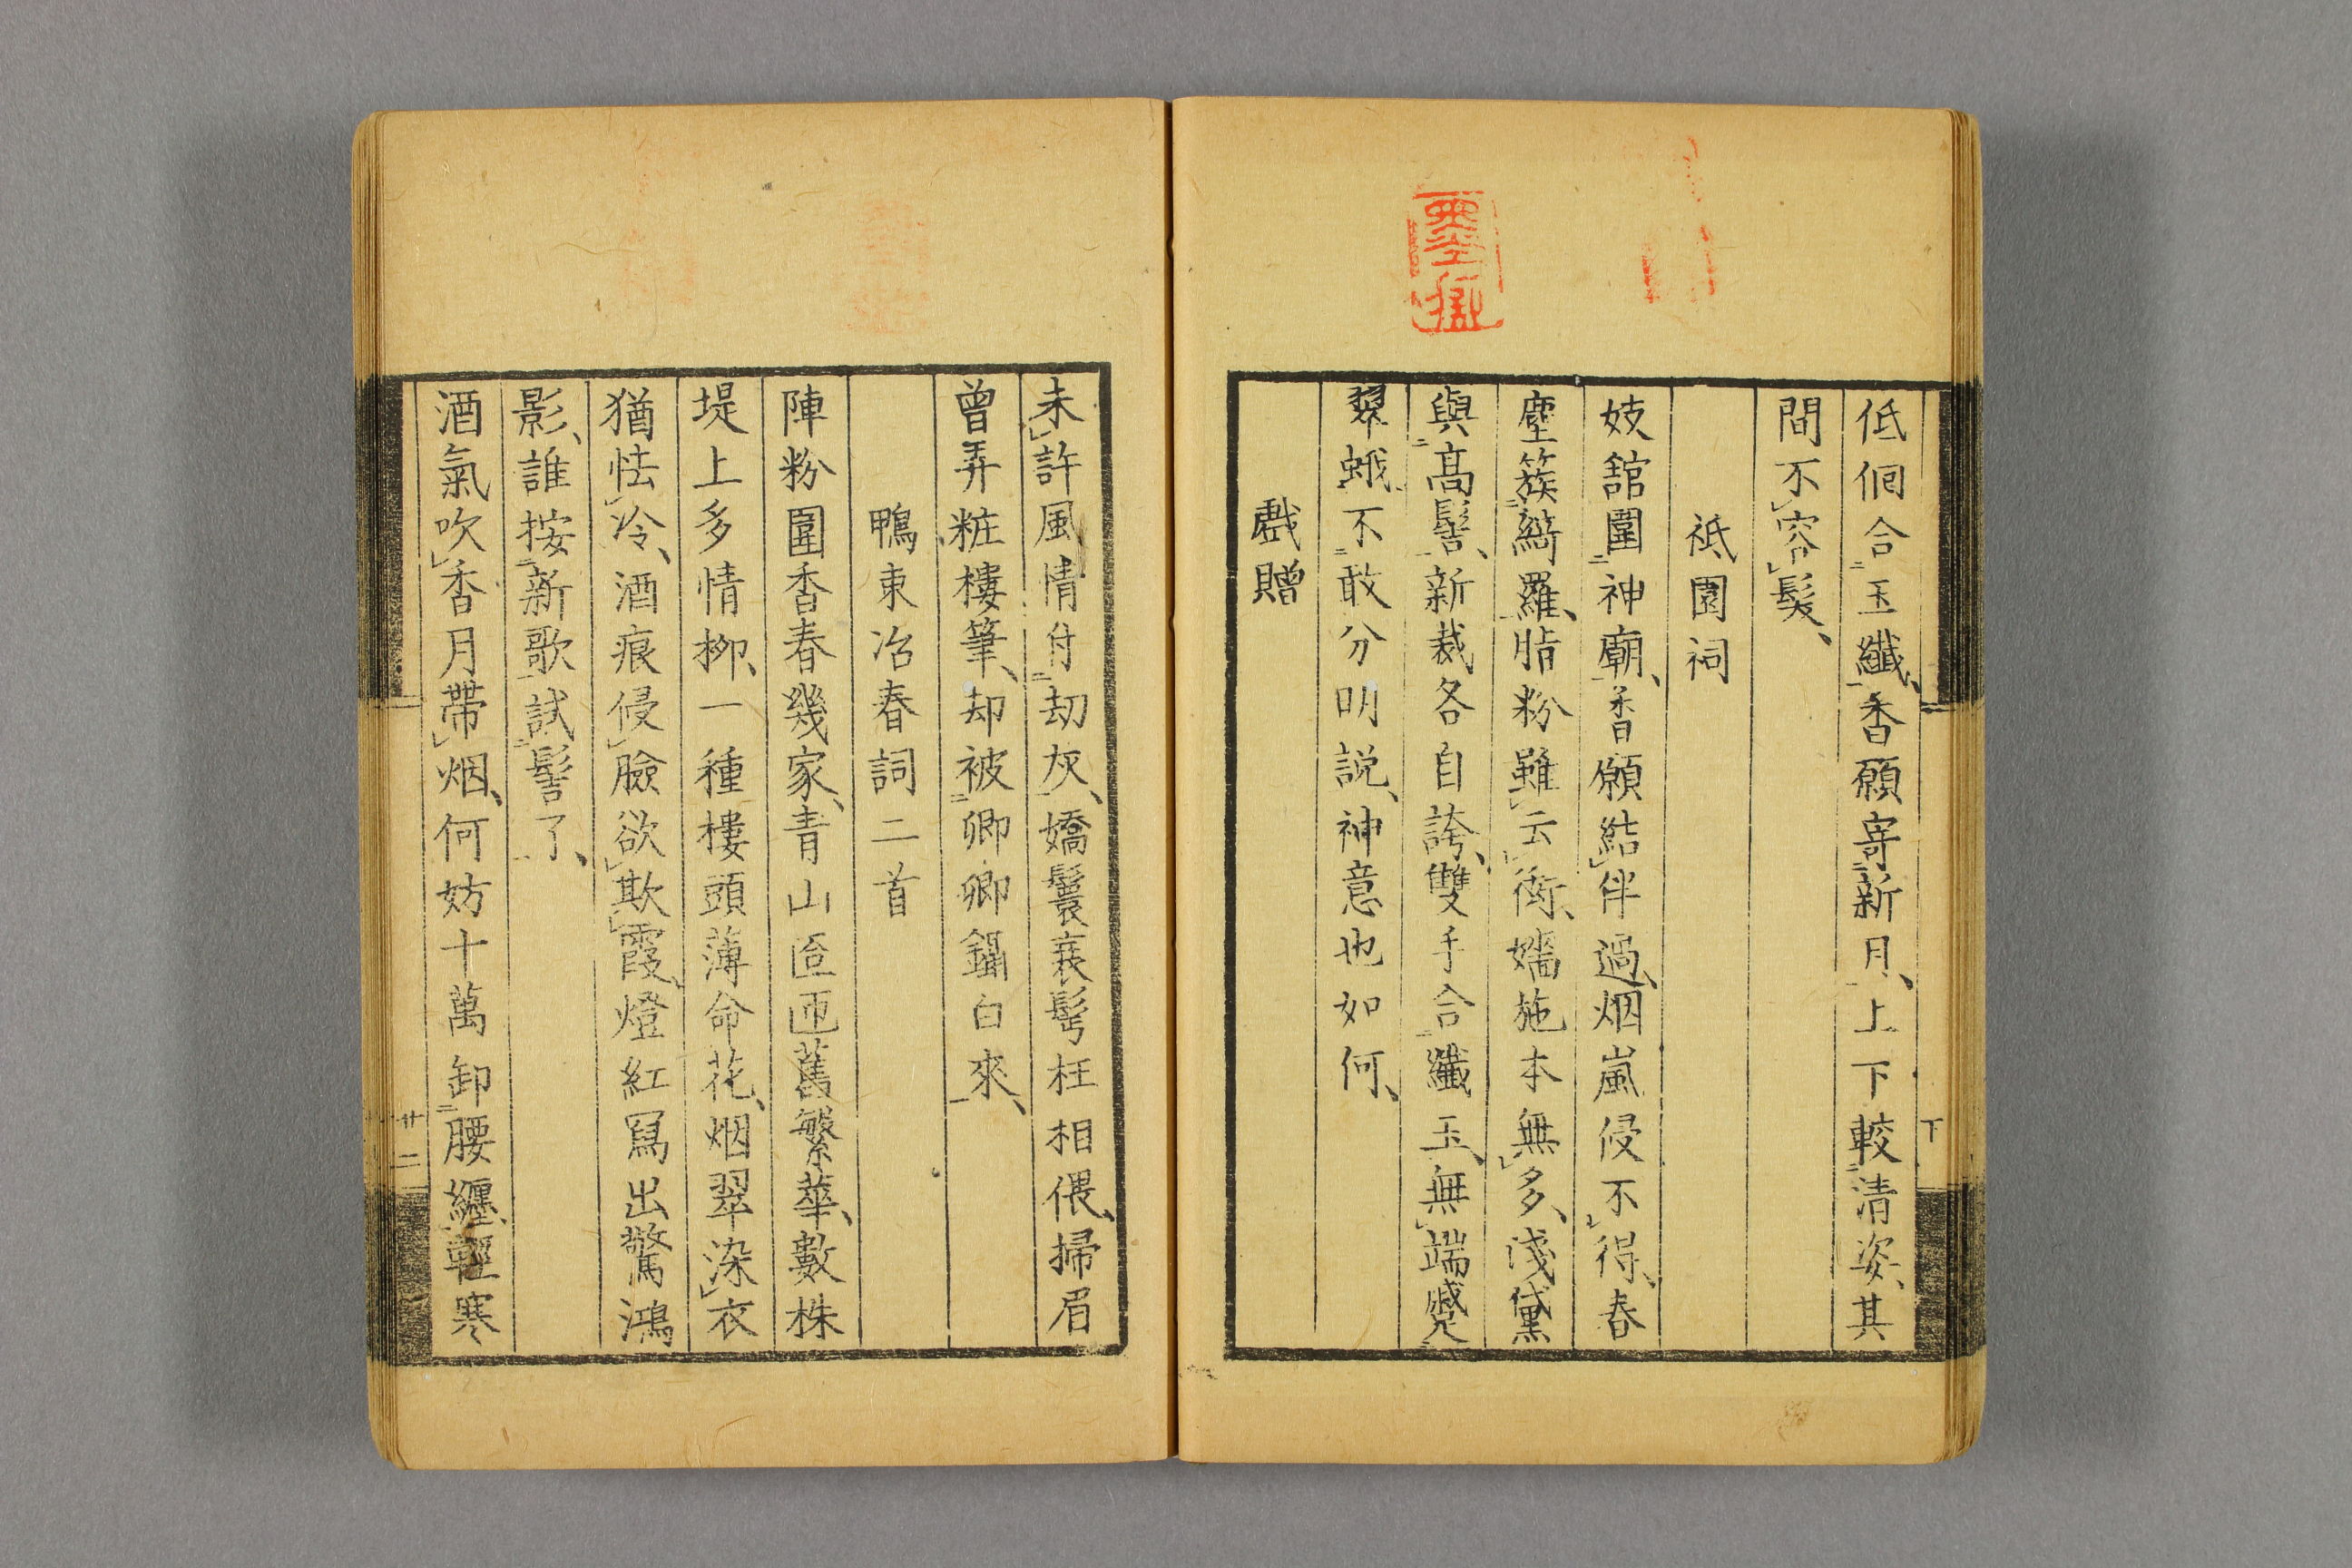 低佪合玉纖、香願寄新月、上下較清姿、其
間不容髮、
祇園祠
妓舘圍神廟、香願結伴過、烟嵐侵不得、春
塵簇綺羅、脂粉雖云衒、嬌施本無多、淺黛
與高髻、新裁各自誇、雙手合纖玉、無端蹙
翠蛾、不敢分明説、神意也如何、
戲贈
未許風情付劫灰、嬌鬟衰髩枉相偎、掃眉
曾弄粧樓筆、却被卿卿鑷白來、
鴨東冶春詞二首
陣粉圍香春幾家、青山匼匝舊繁華、數株
堤上多情柳、一種樓頭薄命花、烟翠染衣
猶怯冷、酒痕侵臉欲欺霞、燈紅寫出驚鴻
影、誰按新歌試髻了、
酒氣吹香月帶烟、何妨十萬卸腰纏、輕寒
下
廿二